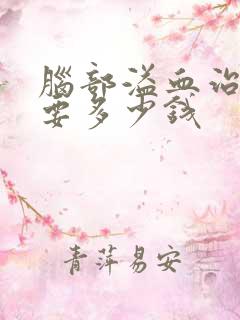 腦部溢血治
要多少錢
青萍易安